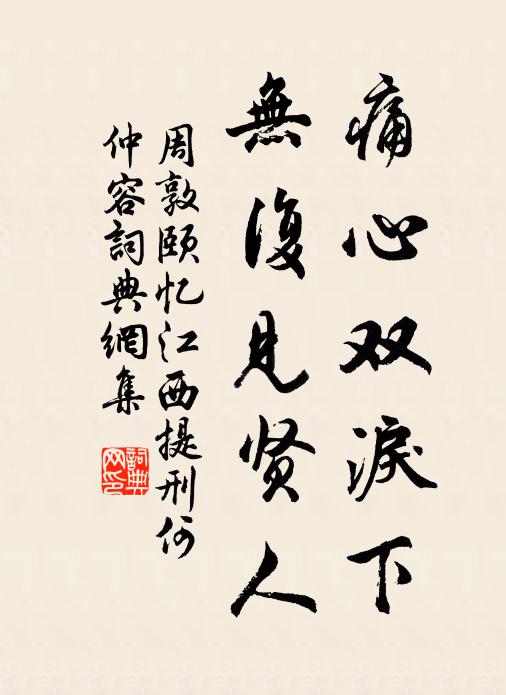 痛心双淚下
無復見贤人
周敦颐忆江西提刑何
仲容詞典網集
詞典网印